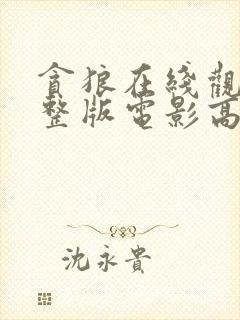 貪狼在綫觀
整版電影高
沈永貴